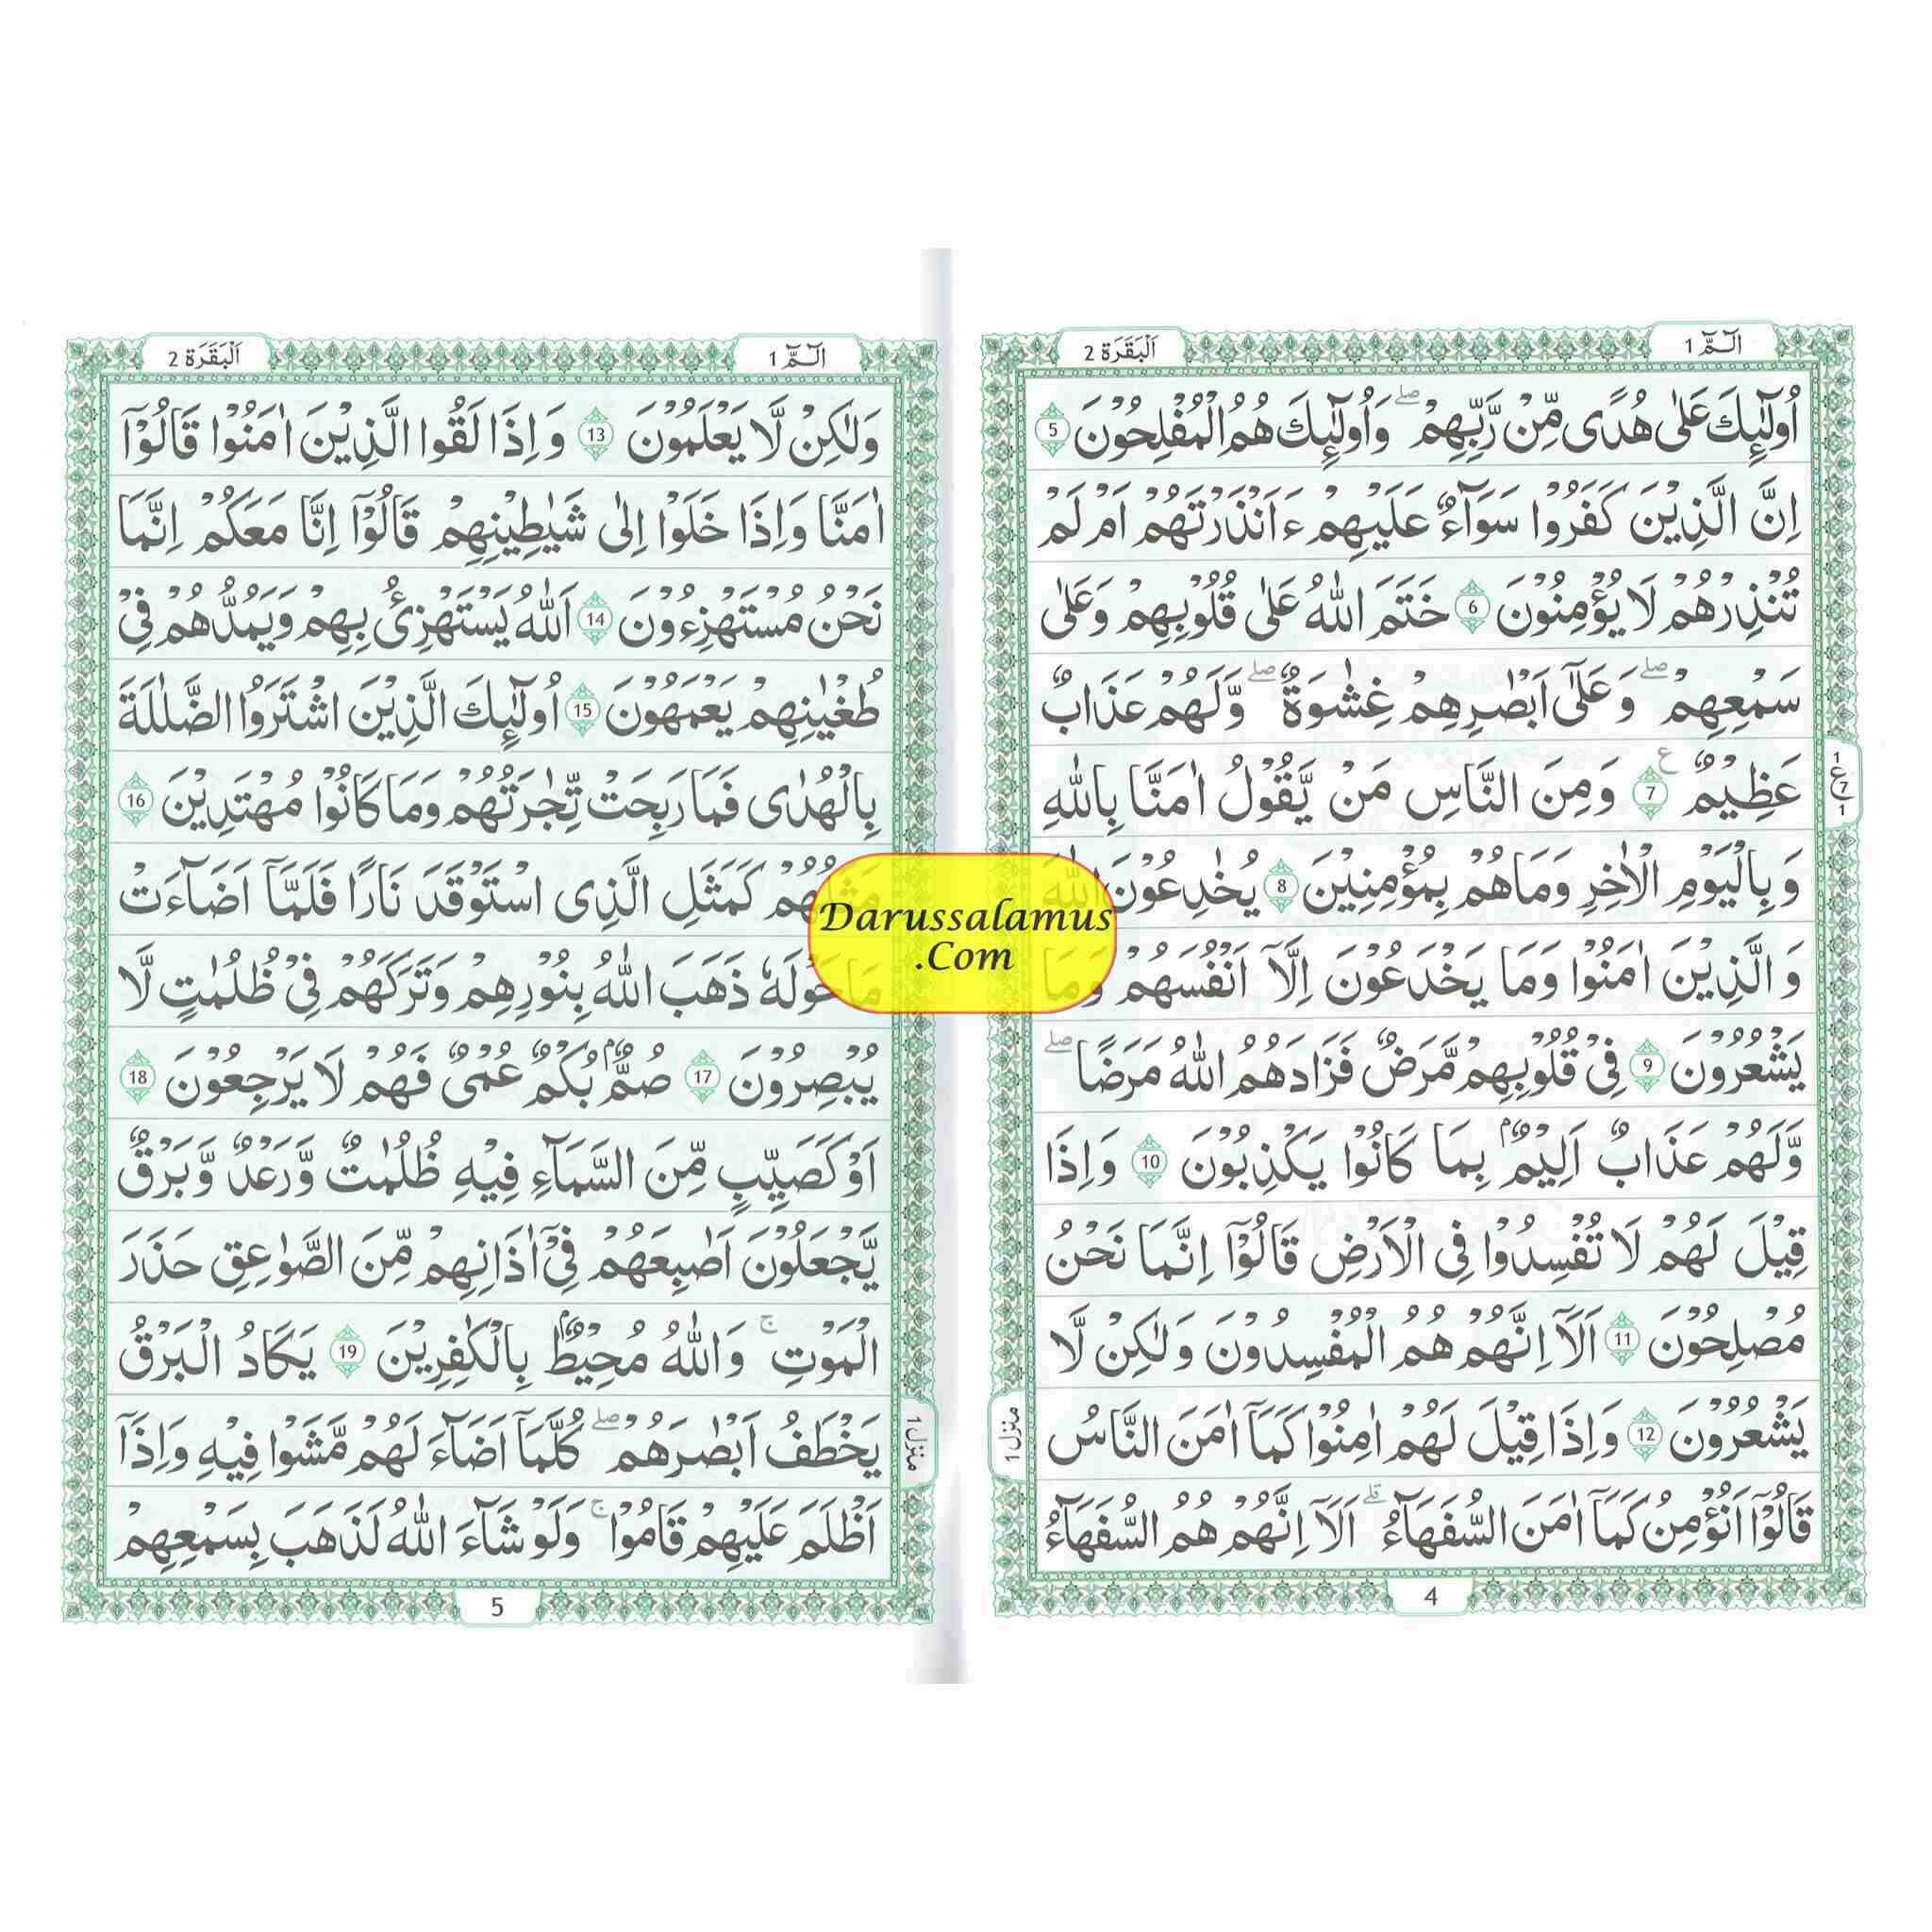 الٓمّٓ 1
اَلْبَقَرَة 2
اُولٰٓئِكَ عَلٰى هُدًى مِّنْ رَّبِّهِمْ ۖ وَاُولٰٓئِكَ هُمُ الْمُفْلِحُوْنَ 5
اِنَّ الَّذِيْنَ كَفَرُوْا سَوَآءٌ عَلَيْهِمْ ءَاَنْذَرْتَهُمْ اَمْ لَمْ
تُنْذِرْهُمْ لَا يُؤْمِنُوْنَ 6 خَتَمَ اللّٰهُ عَلٰى قُلُوْبِهِمْ وَعَلٰى
سَمْعِهِمْ ۖ وَعَلٰٓى اَبْصٰرِهِمْ غِشٰوَةٌ ۖ وَّلَهُمْ عَذَابٌ
عَظِيْمٌ 7 ع وَمِنَ النَّاسِ مَنْ يَّقُوْلُ اٰمَنَّا بِاللّٰهِ
وَبِالْيَوْمِ الْاٰخِرِ وَمَا هُمْ بِمُؤْمِنِيْنَ 8 يُخٰدِعُوْنَ اللّٰهَ
وَالَّذِيْنَ اٰمَنُوْا وَمَا يَخْدَعُوْنَ اِلَّآ اَنْفُسَهُمْ وَمَا
يَشْعُرُوْنَ 9 فِيْ قُلُوْبِهِمْ مَّرَضٌ فَزَادَهُمُ اللّٰهُ مَرَضًا ۖ
وَّلَهُمْ عَذَابٌ اَلِيْمٌۢ بِمَا كَانُوْا يَكْذِبُوْنَ 10 وَاِذَا
قِيْلَ لَهُمْ لَا تُفْسِدُوْا فِى الْاَرْضِ قَالُوْٓا اِنَّمَا نَحْنُ
مُصْلِحُوْنَ 11 اَلَآ اِنَّهُمْ هُمُ الْمُفْسِدُوْنَ وَلٰكِنْ لَّا
يَشْعُرُوْنَ 12 وَاِذَا قِيْلَ لَهُمْ اٰمِنُوْا كَمَآ اٰمَنَ النَّاسُ
قَالُوْٓا اَنُؤْمِنُ كَمَآ اٰمَنَ السُّفَهَآءُ ۗ اَلَآ اِنَّهُمْ هُمُ السُّفَهَآءُ
1
ع 7
1
منزل 1
4
الٓمّٓ 1
اَلْبَقَرَة 2
وَلٰكِنْ لَّا يَعْلَمُوْنَ 13 وَاِذَا لَقُوا الَّذِيْنَ اٰمَنُوْا قَالُوْٓا
اٰمَنَّا وَاِذَا خَلَوْا اِلٰى شَيٰطِيْنِهِمْ قَالُوْٓا اِنَّا مَعَكُمْ اِنَّمَا
نَحْنُ مُسْتَهْزِءُوْنَ 14 اَللّٰهُ يَسْتَهْزِئُ بِهِمْ وَيَمُدُّهُمْ فِيْ
طُغْيٰنِهِمْ يَعْمَهُوْنَ 15 اُولٰٓئِكَ الَّذِيْنَ اشْتَرَوُا الضَّلٰلَةَ
بِالْهُدٰى فَمَا رَبِحَتْ تِّجٰرَتُهُمْ وَمَا كَانُوْا مُهْتَدِيْنَ 16
مَثَلُهُمْ كَمَثَلِ الَّذِى اسْتَوْقَدَ نَارًا فَلَمَّآ اَضَآءَتْ
مَا حَوْلَهٗ ذَهَبَ اللّٰهُ بِنُوْرِهِمْ وَتَرَكَهُمْ فِيْ ظُلُمٰتٍ لَّا
يُبْصِرُوْنَ 17 صُمٌّۢ بُكْمٌ عُمْيٌ فَهُمْ لَا يَرْجِعُوْنَ 18
اَوْ كَصَيِّبٍ مِّنَ السَّمَآءِ فِيْهِ ظُلُمٰتٌ وَّرَعْدٌ وَّبَرْقٌ
يَّجْعَلُوْنَ اَصٰبِعَهُمْ فِيْٓ اٰذَانِهِمْ مِّنَ الصَّوَاعِقِ حَذَرَ
الْمَوْتِ ۚ وَاللّٰهُ مُحِيْطٌۢ بِالْكٰفِرِيْنَ 19 يَكَادُ الْبَرْقُ
يَخْطَفُ اَبْصٰرَهُمْ ۖ كُلَّمَآ اَضَآءَ لَهُمْ مَّشَوْا فِيْهِ وَاِذَآ
اَظْلَمَ عَلَيْهِمْ قَامُوْا ۚ وَلَوْ شَآءَ اللّٰهُ لَذَهَبَ بِسَمْعِهِمْ
منزل 1
5
Darussalamus
.Com